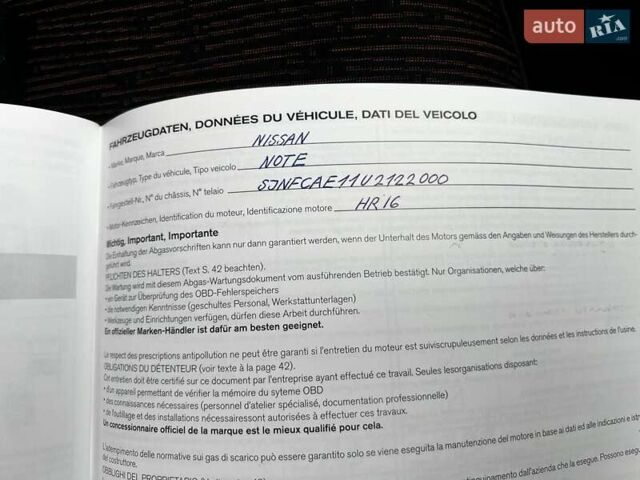 auto RIA.com
FAHRZEUGDATEN, DONNÉES DU VÉHICULE, DATI DEL VEICOLO
• Marke, Marque, Marca NISSAN
• Fahrzeugtyp, Type du véhicule, Tipo veicolo NOTE
• Fahrgestell-Nr., N° du châssis, N° telaio SJNFCAE11U2122000
• Motor-Kennzeichen, Identification du moteur, Identificazione motore HR16
Wichtig, Important, Importante
Die Einhaltung der Abgasvorschriften kann nur dann garantiert werden, wenn der Unterhalt des Motors gemäss den Angaben und Weisungen des Herstellers durch-
geführt wird.
PFLICHTEN DES HALTERS (Text S. 42 beachten).
Die Wartung wird mit diesem Abgas-Wartungsdokument vom ausführenden Betrieb bestätigt. Nur Organisationen, welche über:
• ein Gerät zur Überprüfung des OBD-Fehlerspeichers
• die notwendigen Kenntnisse (geschultes Personal, Werkstattunterlagen)
• Werkzeuge und Einrichtungen verfügen, dürfen diese Arbeit durchführen.
Ein offizieller Marken-Händler ist dafür am besten geeignet.
Le respect des prescriptions antipollution ne peut être garanti si l'entretien du moteur est suiviscrupuleusement selon les données et les instructions de l'usine.
OBLIGATIONS DU DÉTENTEUR (voir texte à la page 42).
Cet entretien doit être certifié sur ce document par l'entreprise ayant effectué ce travail. Seules lesorganisations disposant:
• d'un appareil permettant de vérifier la mémoire du syteme OBD
• des connaissances nécessaires (personnel d'atelier spécialisé, documentation professionnelle)
• de l'outillage et des installations nécessairessont autorisées à effectuer ces travaux.
Un concessionnaire officiel de la marque est le mieux qualifié pour cela.
L'adempimento delle normative sui gas di scarico può essere garantito solo se viene eseguita la manutenzione del motore in base ai dati ed alle indicazioni e istr
del costruttore.
OBBLIGHI DEL
dall'azienda che la esegue. Possono eseg